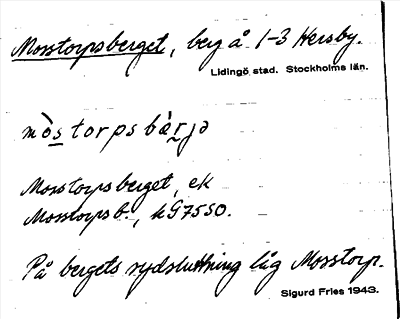 Mosstorpsberget, berg å 1-3 Hersby.
Lidingö stad. Stockholms län.
mòs torps bæ̀rjə
Mosstorpsberget, ek
Mosstorpsb., k G7550.
På bergets sydsluttning låg Mosstorp.
Sigurd Fries 1943.